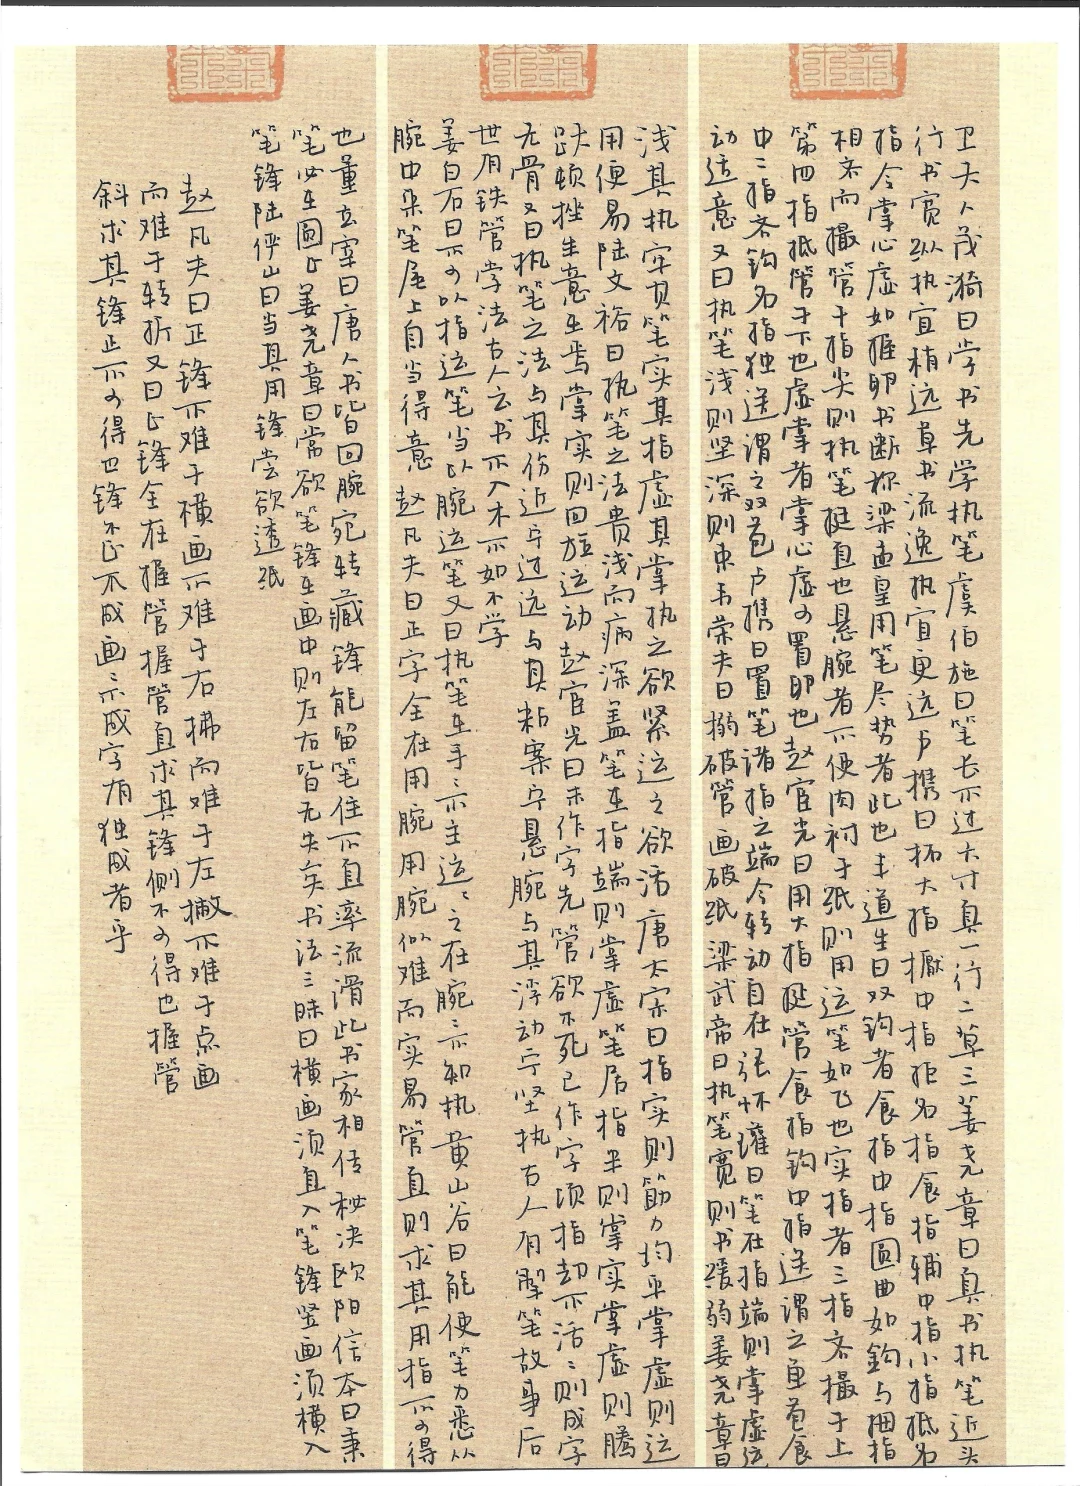 卫夫人茂漪曰学书先学执笔虞伯施曰笔长不过六寸真一行二草三姜尧章曰真书执笔近头
行书宽纵执宜稍远草书流逸执宜更远卢携曰拓大指擫中指拒名指食指辅中指小指抵名
指令掌心虚如握卵书断称梁孟皇用笔尽势者此也丰道生曰双钩者食指中指圆曲如钩与捆指
相齐而撮管于指尖则执笔挺直也悬腕者不使肉衬于纸则运笔如飞也实指者三指齐撮于上
第四指抵管于下也虚掌者掌心虚可置卵也赵宧光曰用大指挺管食指钩中指送谓之单苞食
中二指齐钩名指独送谓之双苞卢携曰置笔诸指之端令转动自在张怀瓘曰笔在指端则掌虚运
动适意又曰执笔浅则坚深则束韦荣夫曰搦破管画破纸梁武帝曰执笔宽则书缓弱姜尧章曰
浅其执牢其笔实其指虚其掌执之欲紧运之欲活唐太宗曰指实则筋力均平掌虚则运
用便易陆文裕曰执笔之法贵浅而病深盖笔在指端则掌虚笔居指半则掌实掌虚则腾
跃顿挫生意出焉掌实则回旋运动赵宧光曰未作字先管欲不死已作字须指却不活二则成字
无骨又曰执笔之法与其伤近宁过远与其粘案宁悬腕与其浮动宁坚执古人有掣笔故事后
世有铁管学法古人云书不入木不如不学
姜白石曰不可以指运笔当以腕运笔又曰执笔在手手不主运运之在腕腕不知执黄山谷曰能使笔力悉从
腕中来笔尾上自当得意 赵凡夫曰正字全在用腕用腕似难而实易管直则求其用指不可得
也董立宰曰唐人书皆回腕宛转藏锋能留笔住不直率流滑此书家相传秘决欧阳信本曰秉
笔必在圆正姜尧章曰常欲笔锋在画中则左右皆无失矣书法三昧曰横画须直入笔锋竖画须横入
笔锋陆俨山曰当其用锋尝欲透纸
赵凡夫曰正锋不难于横画不难于右拂而难于左撇不难于点画
而难于转折又曰正锋全在握管握管直求其锋侧不可得也握管
斜求其锋正不可得也锋不正不成画画不成字有独成者乎